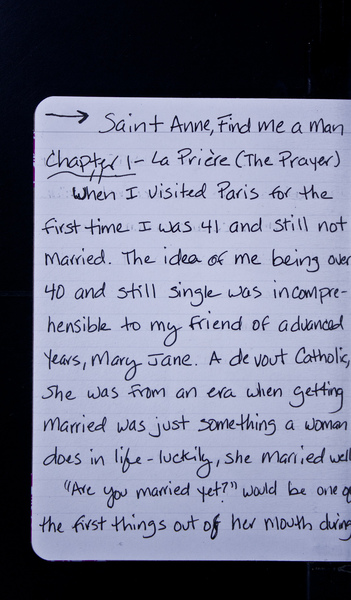 → Saint Anne, Find me a man
Chapter 1- La Prière (The Prayer)
When I visited Paris for the
first time I was 41 and still not
married. The idea of me being over
40 and still single was incompre-
hensible to my friend of advanced
years, Mary Jane. A devout Catholic,
she was from an era when getting
married was just something a woman
does in life - luckily, she married well
"Are you married yet?" would be one of
the first things out of her mouth during